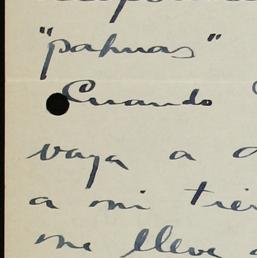 "pahuas"
Cuando
vaya a
a mi tier
me lleve a